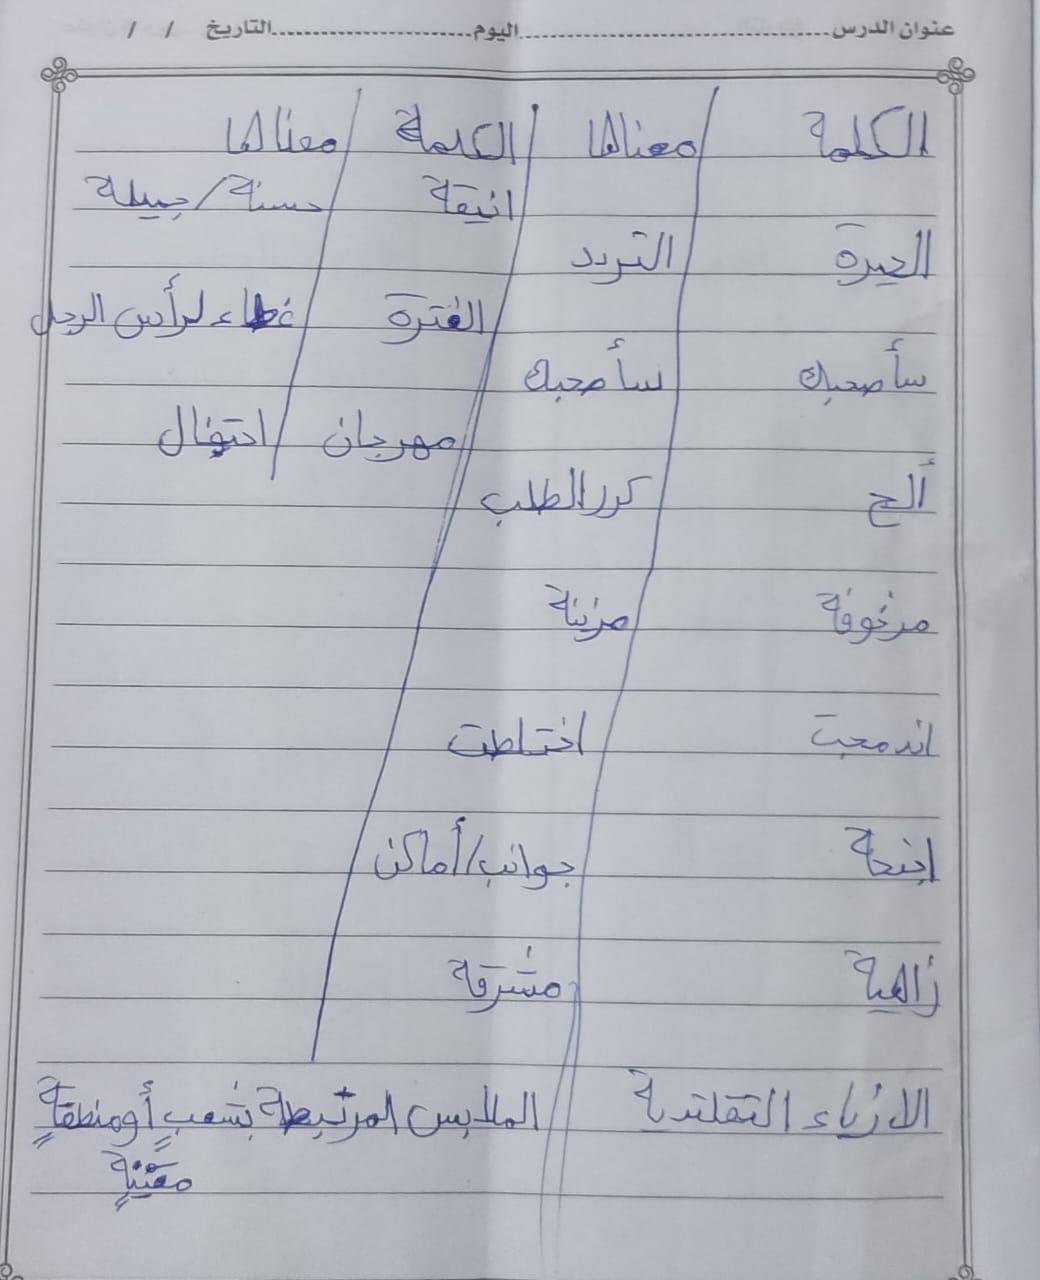 عنوان الدرس........................................اليوم.........................التاريخ / /
الكلمة / معناها / الكلمة / معناها
انيقة حسنة/جميلة
الحيرة التردد
الغترة غطاء لرأس الرجل
سأصحبك سأصحبك
مهرجان / احتفال
ألح كرر الطلب
مزخوفة مزينة
اندمجت اختلطت
اجنحة جوانب/أماكن
زاهية مشرقة
الازياء التقلتدية الملابس المرتبطة بشعبٍ أو منطقةٍ
معينةٍ